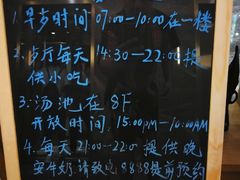 1.早步时间 07:00-10:00在一楼
2.步厅每天 14:30-22:00提
供小吃
3.汤池在8F
开放时间:15:00pm-10:00AM
4.每天21:00-22:00提供晚
安牛奶请致电8888提前预约